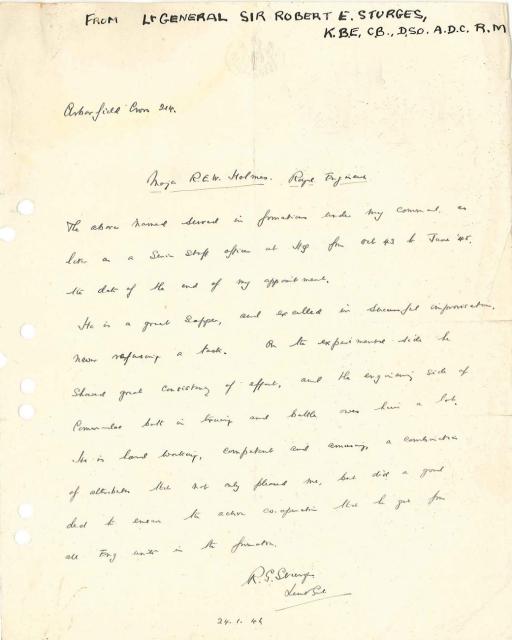 FROM Lt GENERAL SIR ROBERT E. STURGES,
K.B.E, CB., D,SO. A.D.C. R.M
Arborfield Cross 214.
Major R.E.W. Holmes. Royal Engineers
The above named served in formations under my command, as
later as a Senior Staff officer at HQ from Oct 43 to June '45.
the date of the end of my appointment.
He is a great Sapper, and excelled in successful improvisation,
never refusing a task. On the experimental side he
showed great consistency of effort, and the engineering side of
Commandos both in training and battle owes him a lot.
He is hard working, competent and amusing, a combination
of attributes that not only pleased me, but did a good
deal to ensure the active co-operation that he got from
all Eng units in the formation.
R.G. Sturges
Lieut Gen
24.1.46